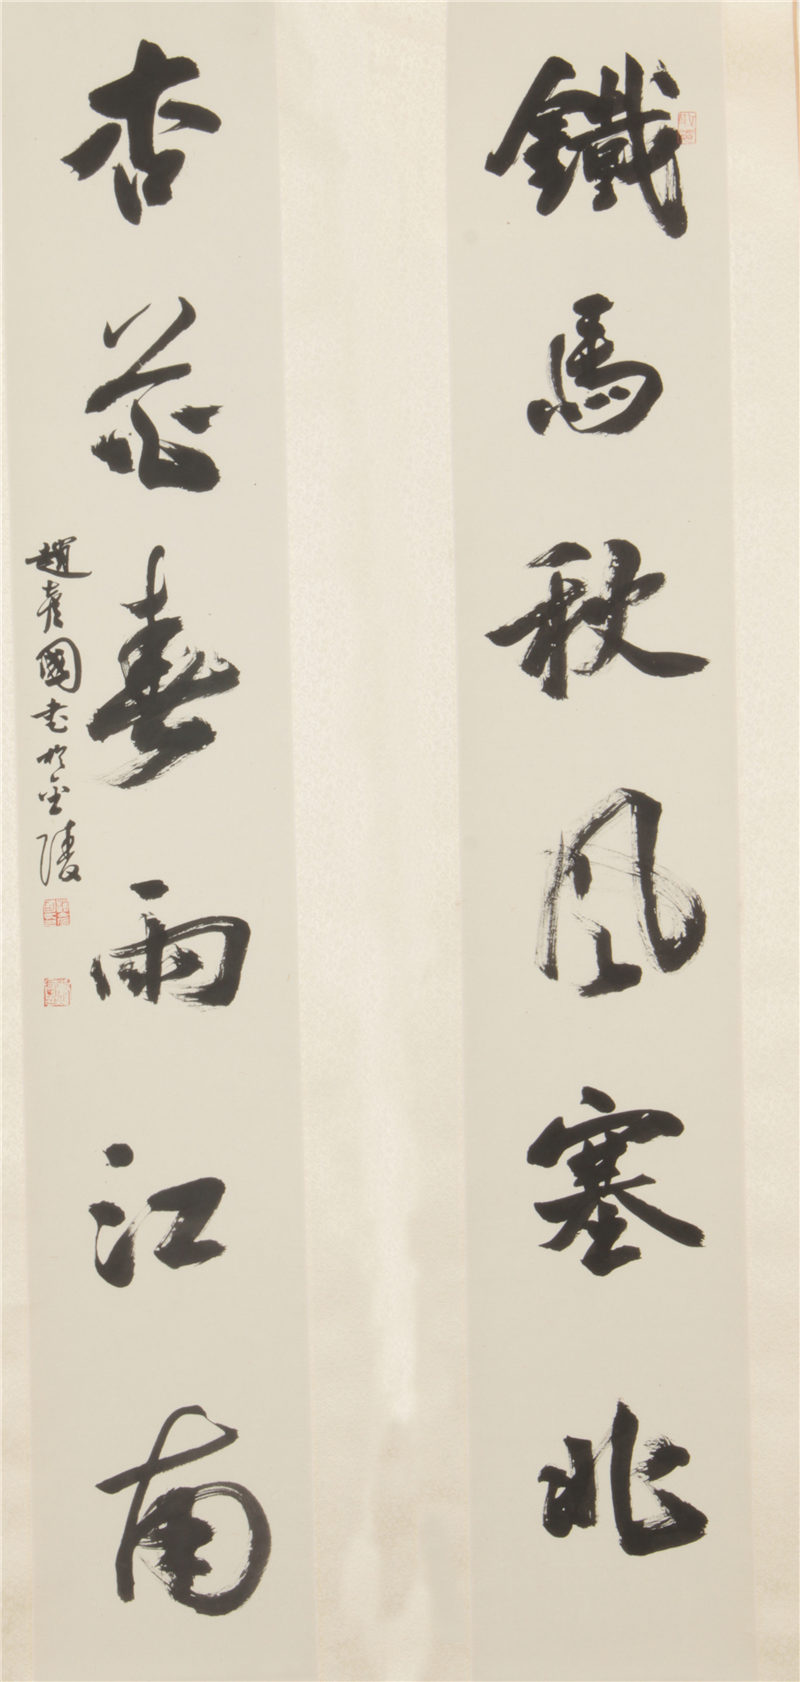 鐵馬秋風塞北
杏花春雨江南
趙彥國書於金陵